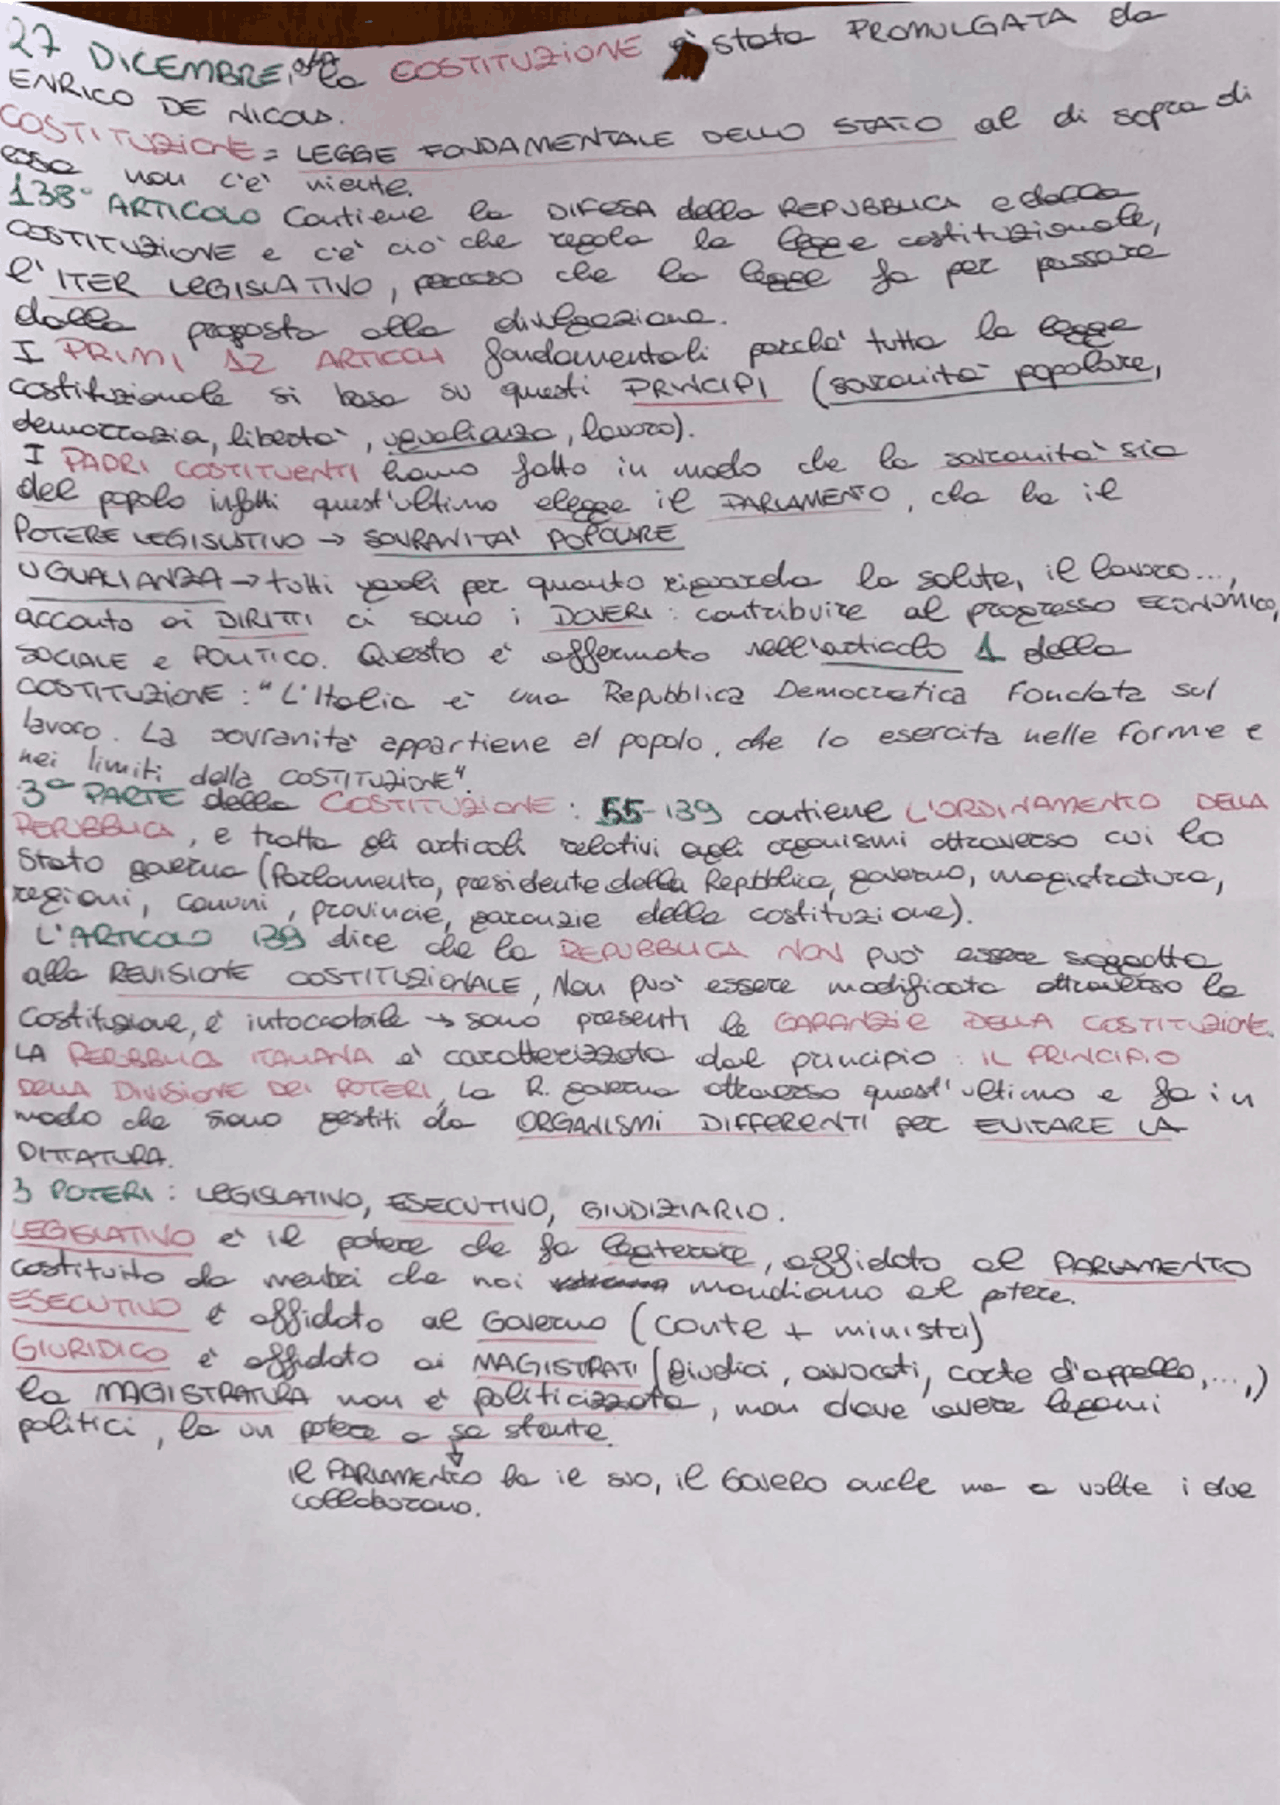 27 DICEMBRE, la COSTITUZIONE è stata PROMULGATA da
ENRICO DE NICOLA.
COSTITUZIONE = LEGGE FONDAMENTALE DELLO STATO al di sopra di
essa non c'è niente.
138° ARTICOLO Contiene la DIFESA della REPUBBLICA e della
COSTITUZIONE e c'è ciò che regola la legge costituzionale,
l'ITER LEGISLATIVO, percorso che la legge fa per passare
dalla proposta alla divulgazione.
I PRIMI 12 ARTICOLI fondamentali perché tutta la legge
costituzionale si basa su questi PRINCIPI (sovranità popolare,
democrazia, libertà, uguaglianza, lavoro).
I PADRI COSTITUENTI hanno fatto in modo che la sovranità sia
del popolo infatti quest'ultimo elegge il PARLAMENTO, che ha il
POTERE LEGISLATIVO → SOVRANITA' POPOLARE
UGUALIANZA → tutti uguali per quanto riguarda la salute, il lavoro...,
accanto ai DIRITTI ci sono i DOVERI: contribuire al progresso ECONOMICO,
SOCIALE e POLITICO. Questo è affermato nell'articolo 1 della
COSTITUZIONE: "L'Italia è una Repubblica Democratica Fondata sul
lavoro. La sovranità appartiene al popolo, che lo esercita nelle forme e
nei limiti della COSTITUZIONE".
3ª PARTE della COSTITUZIONE: 55-139 contiene L'ORDINAMENTO DELLA
REPUBBLICA, e tratta gli articoli relativi agli organismi attraverso cui lo
Stato governa (Parlamento, presidente della Repubblica, governo, magistratura,
regioni, comuni, provincie, garanzie della costituzione).
L'ARTICOLO 139 dice che la REPUBBLICA NON può essere soggetta
alla REVISIONE COSTITUZIONALE, Non può essere modificata attraverso la
Costituzione, è intoccabile → sono presenti le GARANZIE DELLA COSTITUZIONE.
LA REPUBBLICA ITALIANA è caratterizzata dal principio: IL PRINCIPIO
DELLA DIVISIONE DEI POTERI, La R. governa attraverso quest'ultimo e fa in
modo che siano gestiti da ORGANISMI DIFFERENTI per EVITARE LA
DITTATURA.
3 POTERI: LEGISLATIVO, ESECUTIVO, GIUDIZIARIO.
LEGISLATIVO è il potere che fa affidato al PARLAMENTO
costituito da membri che noi mandiamo al potere.
ESECUTIVO è affidato al Governo (Conte + ministri)
GIURIDICO è affidato ai MAGISTRATI (giudici, avvocati, corte d'appello,...,)
la MAGISTRATURA non è politicizzata, non deve avere legami
politici, ha un potere a se stante.
↓
il PARLAMENTO ha il suo, il GOVERO anche ma a volte i due
collaborano.